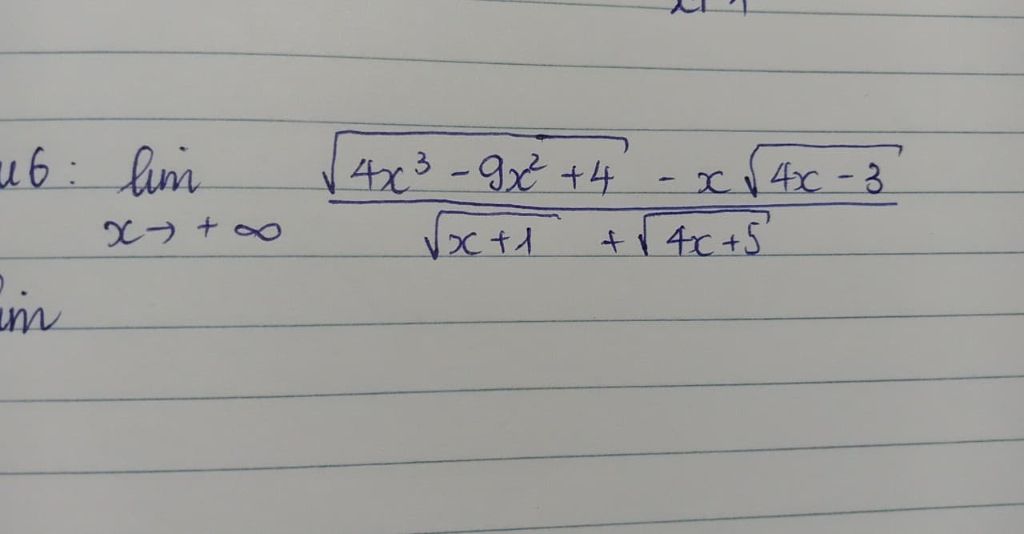 u6: lim √(4x³ - 9x² + 4) - x√(4x - 3)
x → + ∞ √(x + 1) + √(4x + 5)
im